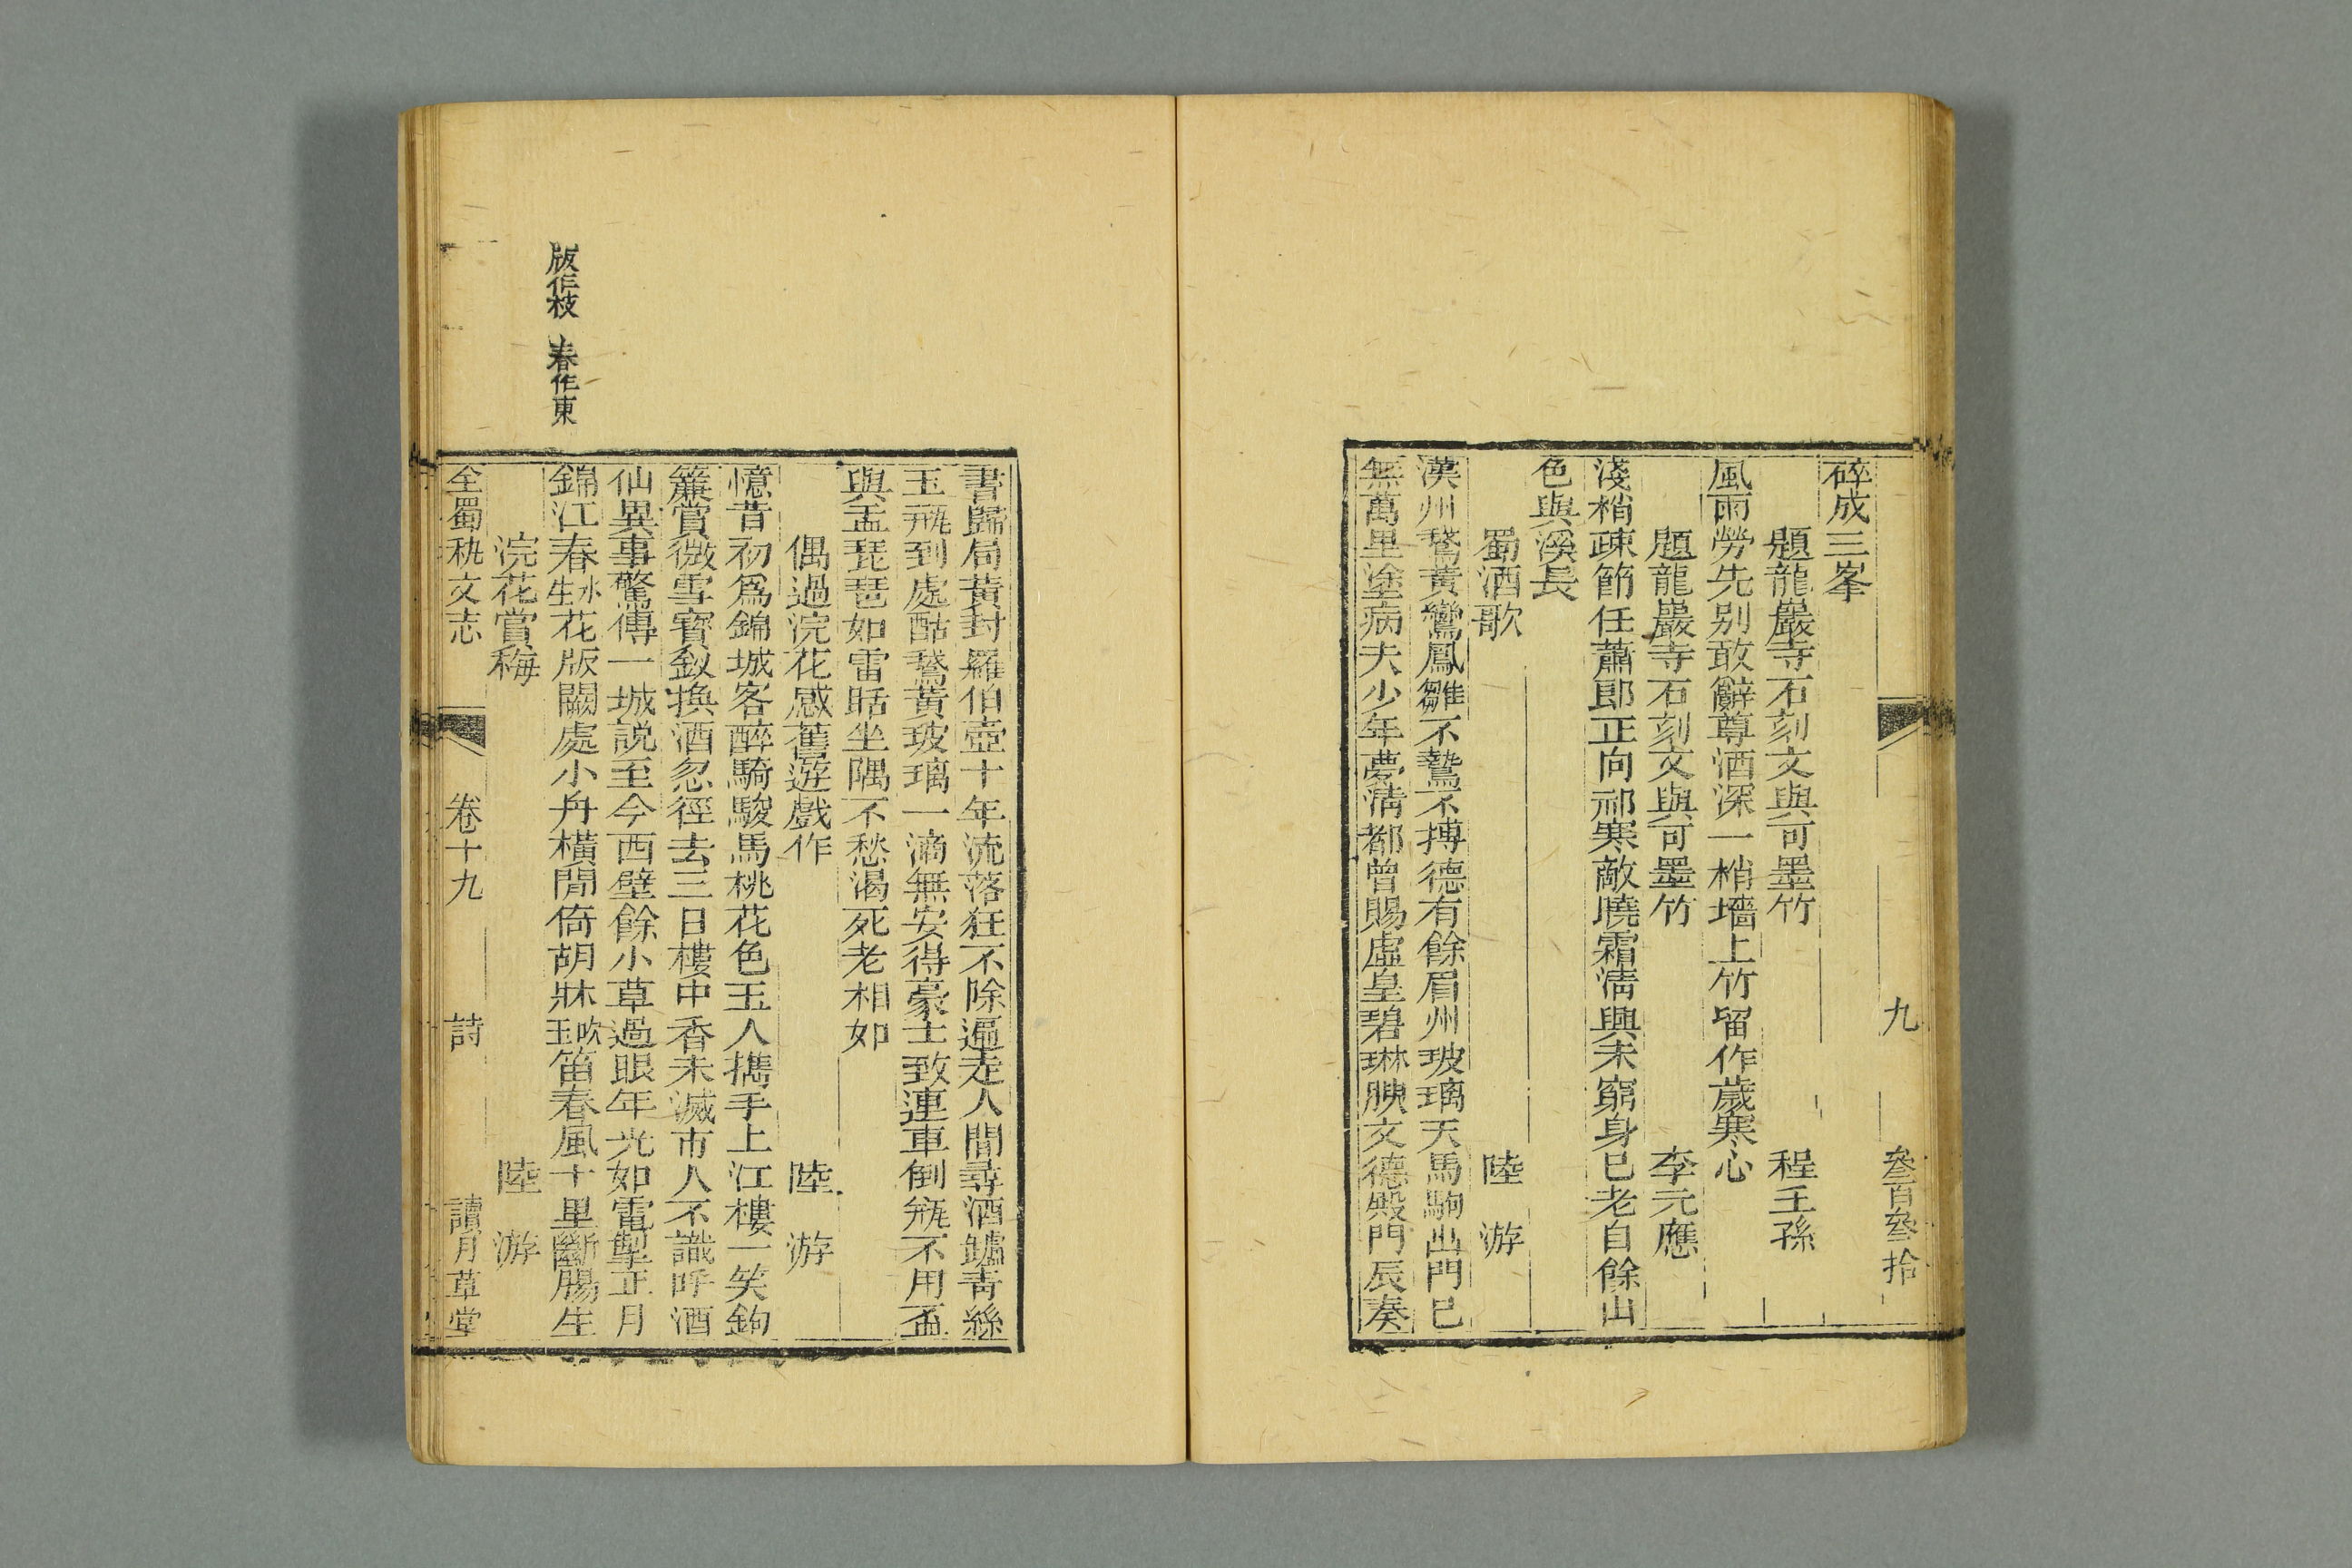 九
叄百叄拾
碎成三峯
題龍巖寺石刻文與可墨竹　程王孫
風雨勞先别敢辭尊酒深一梢墻上竹留作歲寒心
題龍巖寺石刻文與可墨竹　李元應
淺梢疎節任蕭郎正向祁寒敵曉霜清興未窮身已老自餘山
色與溪長
蜀酒歌　陸游
漢州鵞黃鸞鳳雛不鷙不搏德有餘眉州玻璃天馬駒出門已
無萬里塗病夫少年夢清都曾賜虛皇碧琳腴文德殿門辰奏
書歸局黃封羅伯壺十年流落狂不除遍走人間尋酒罏青絲
玉瓶到處酤鵞黃玻璃一滴無安得豪士致連車倒瓶不用盃
與盂琵琶如雷聒坐隅不愁渴死老相如
偶過浣花感舊遊戲作　陸游
憶昔初爲錦城客醉騎駿馬桃花色玉人攜手上江樓一笑鉤
簾賞微雪寶釵換酒忽徑去三日樓中香未滅市人不識呼酒
仙異事驚傳一城說至今西壁餘小草過眼年光如電掣正月
錦江春水生花版闕處小舟橫閒倚胡牀吹玉笛春風十里斷腸生
浣花賞梅　陸游
全蜀秇文志　卷十九　詩　讀月草堂
版作枝　春作東